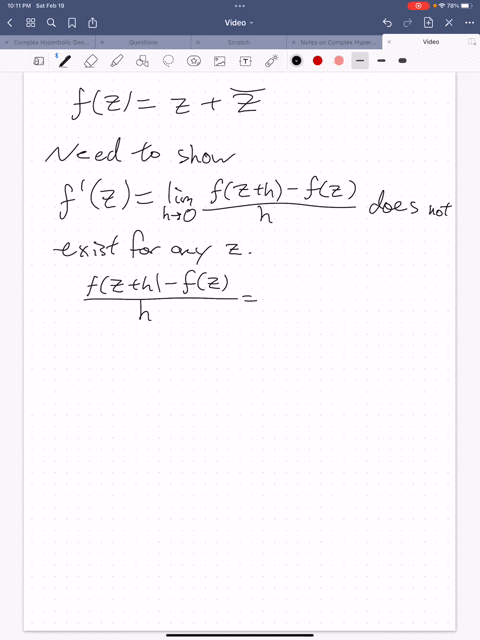 10:11 PM Sat Feb 19
78%
Video
Complex Hyperbolic Geo...
Questions
Scratch
Notes on Complex Hyper...
Video
f(z) = z + z̅
Need to show
f'(z) = lim h→0 f(z+h) - f(z) / h does not
exist for any z.
f(z+h) - f(z) / h =